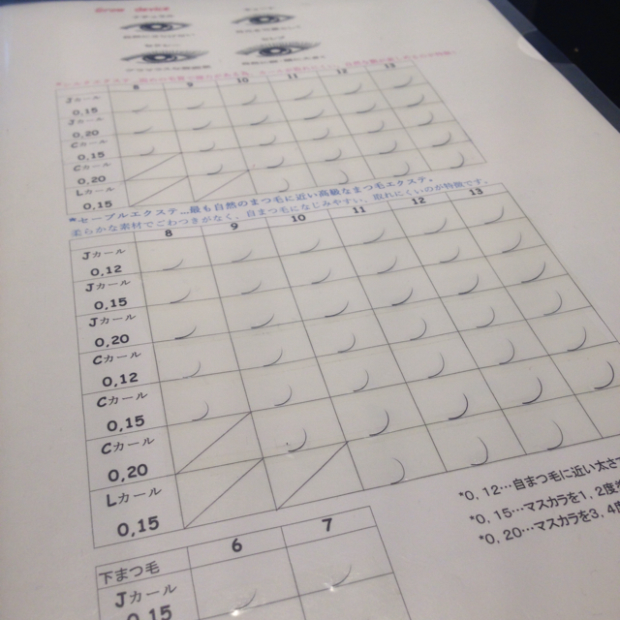 8 9 10 11 12 13
Jカール
0,15
Jカール
0,20
Cカール
0,15
Cカール
0,20
Lカール
0,15
*セーブルエクステ…最も自然のまつ毛に近い高級なまつ毛エクステ。
柔らかな素材でごわつきがなく、自まつ毛になじみやすい、取れにくいのが特徴です。
8 9 10 11 12 13
Jカール
0,12
Jカール
0,15
Jカール
0,20
Cカール
0,12
Cカール
0,15
Cカール
0,20
Lカール
0,15
*0, 12…自まつ毛に近い太さ
*0, 15…マスカラを1, 2度
*0, 20…マスカラを3, 4度
下まつ毛 6 7
Jカール
0,15